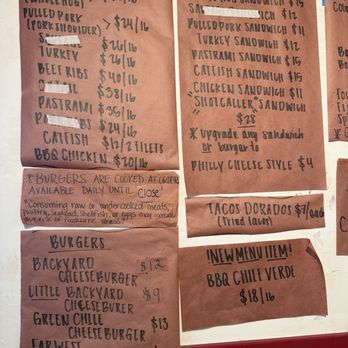 PULLED PORK
(PORK SHOULDER) > $24/lb
$26/lb
TURKEY $26/lb
BEEF RIBS $40/lb
$38/lb
PASTRAMI $35/lb
$24/lb
CATFISH $12/2 FILETS
BBQ CHICKEN $20/lb
* BURGERS ARE COOKED AT ORDER
AVAILABLE DAILY UNTIL Close!
"Consuming raw or undercooked meats,
poultry, seafood, shellfish, or eggs may increase
illness"
BURGERS
BACKYARD $12
CHEESEBURGER
LITTLE BACKYARD $9
CHEESEBURGER
GREEN CHILE $13
CHEESEBURGER
FAR WEST
SANDWICH $15
SANDWICH $12
PULLED PORK SANDWICH $11
TURKEY SANDWICH $12
PASTRAMI SANDWICH $15
CATFISH SANDWICH $15
CHICKEN SANDWICH $11
"SHOT CALLER" SANDWICH
$28
* Upgrade any sandwich
or burger to
PHILLY CHEESE STYLE $4
TACOS DORADOS $7/each
(fried tacos)
!NEW MENU ITEM!
BBQ CHILI VERDE
$18/lb